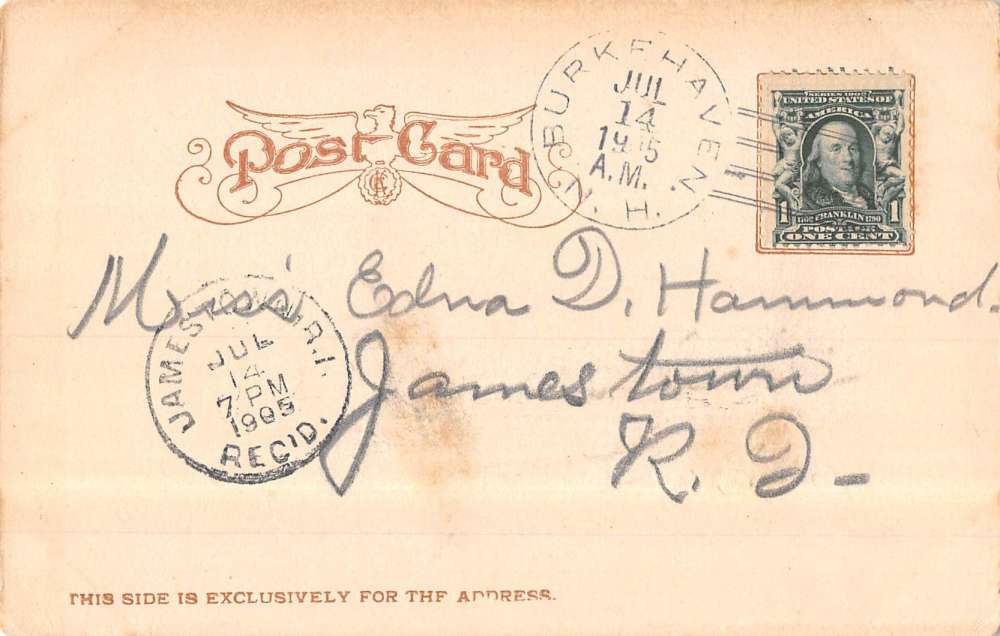 Post Card
BURKEHAVEN
JUL
14
1905
A.M.
N.H.
SERIES 1902
UNITED STATES OF
AMERICA
1 1
1706 FRANKLIN 1790
POSTAGE
ONE CENT
Miss Edna D. Hammond.
Jamestown
R. I.
JAMESTOWN, R.I.
JUL
14
7 PM
1905
REC'D.
THIS SIDE IS EXCLUSIVELY FOR THE ADDRESS.